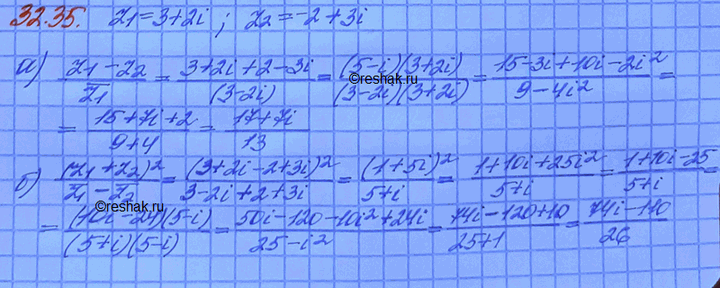 32.35. z₁ = 3+2i ; z₂ = -2+3i
а) (z₁ - z₂)/z̅₁ = (3+2i+2-3i)/(3-2i) = (5-i)(3+2i)/(3-2i)(3+2i) = (15-3i+10i-2i²)/(9-4i²) =
= (15+7i+2)/(9+4) = (17+7i)/13
©reshak.ru
б) (z₁+z₂)²/(z̅₁ - z̅₂) = (3+2i-2+3i)²/(3-2i+2+3i) = (1+5i)²/(5+i) = (1+10i+25i²)/(5+i) = (1+10i-25)/(5+i) =
= (10i-24)(5-i)/(5+i)(5-i) = (50i-120-10i²+24i)/(25-i²) = (74i-120+10)/(25+1) = (74i-110)/26
©reshak.ru